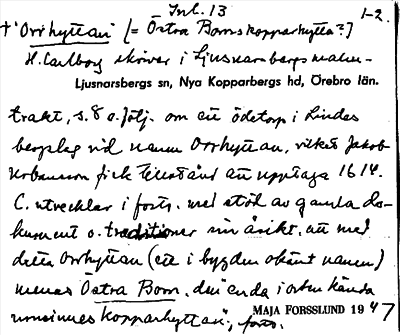 Inl. 13
1-2.
† "Orrhyttan" [= Östra Borns kopparhytta?]
H. Carlborg skriver i Ljusnarsbergs malm-
Ljusnarsbergs sn, Nya Kopparbergs hd, Örebro län.
trakt, s. 8 o. följ. om ett ödetorp i Lindes
bergslag vid namn Orrhyttan, vilket Jakob
Urbansson fick tillstånd att upptaga 1614.
C. utvecklar i forts. med stöd av gamla do-
kument o. traditioner sin åsikt, att med
detta Orrhyttan (ett i bygden okänt namn)
menas Östra Born, den enda i orten kända
"kopparhyttan", forts.
MAJA FORSSLUND 1947